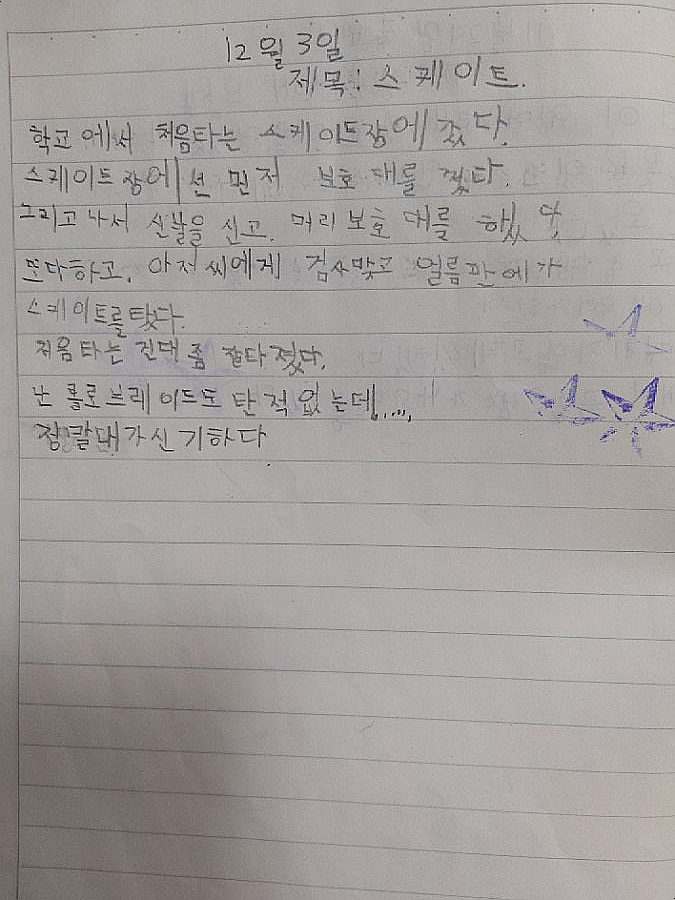 12월 3일
제목: 스케이트.
학교에서 처음타는 스케이드장에 갔다.
스케이트장에선 먼저 보호 대를 꼈다.
그리고 나서 신발을 신고. 머리 보호 대를 했다
또다하고. 아저씨에게 검사맞고 얼름판에가
스케이트를 탔다.
처음타는 건대 좀 잘타졌다.
난 롤로브레이드도 탄적 없는데,....,
정말내가신기하다